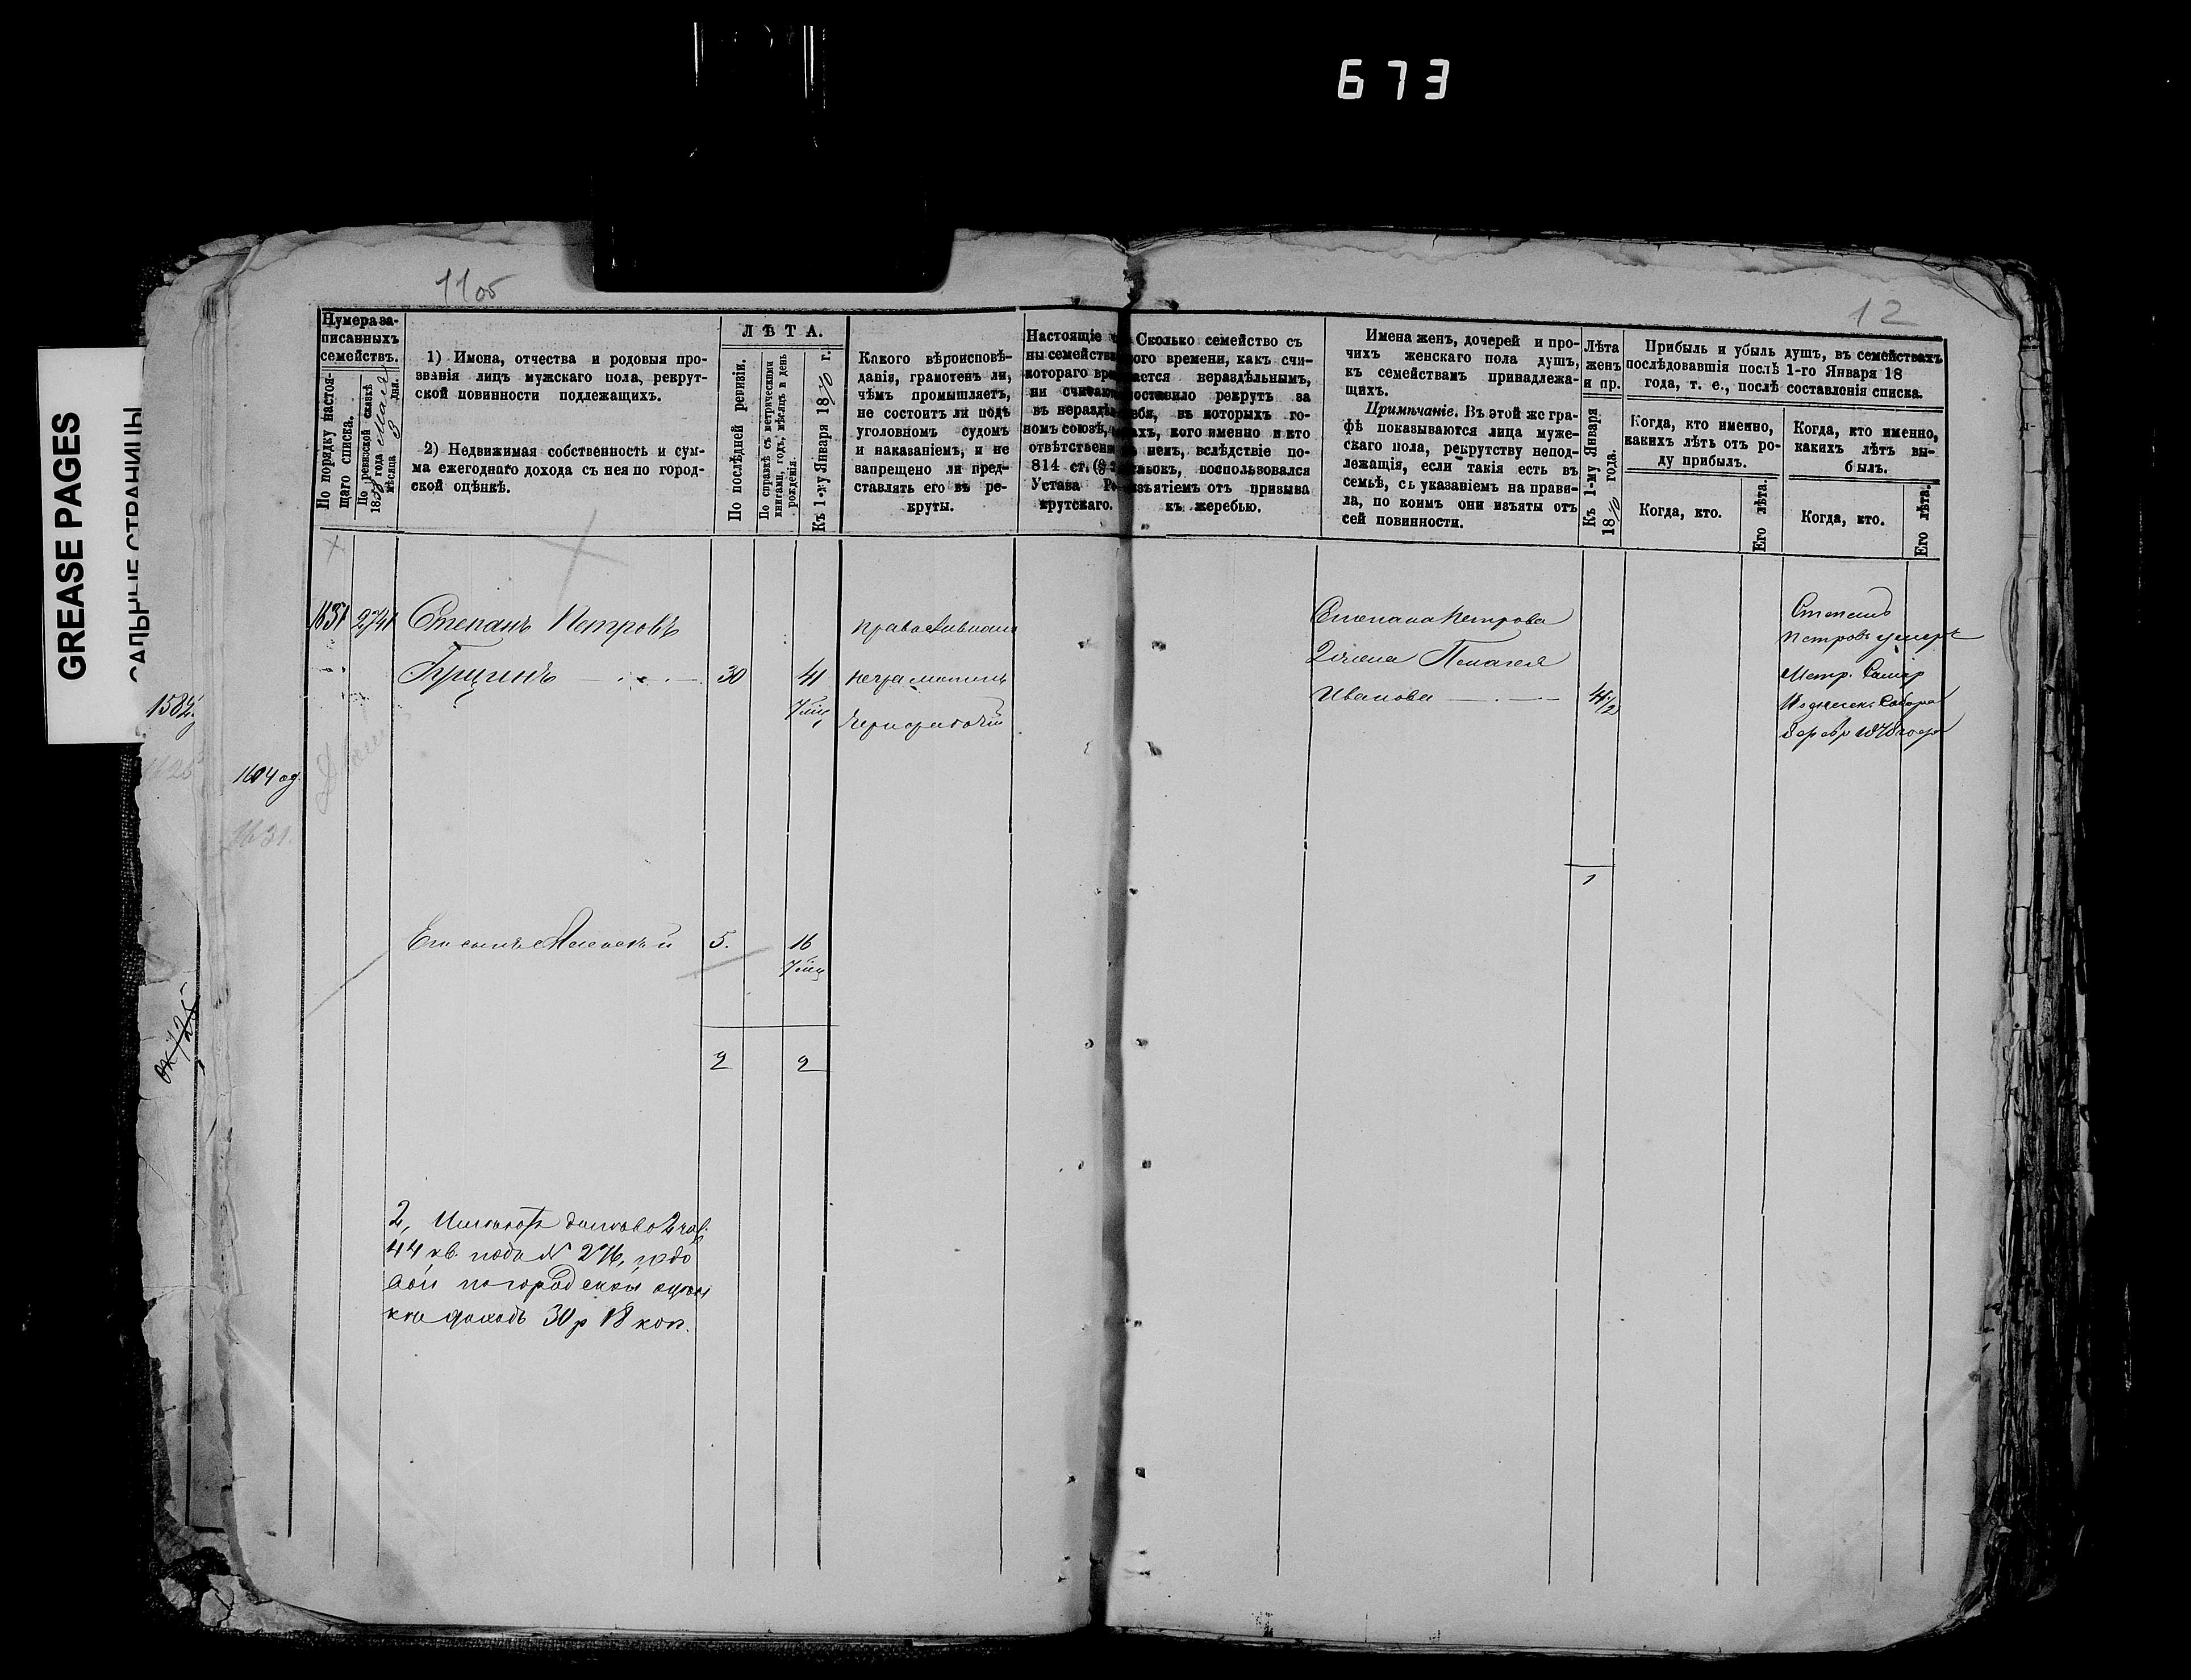 673
GREASE PAGES
САЛЬНЫЕ СТРАНИЦЫ
11об
12
Нумера за-
писанныхъ
семействъ.
По порядку настоя-
щаго списка.
По ревизской сказкѣ
18 года
мѣсяца 3 дня.
1) Имена, отчества и родовыя про-
званія лицъ мужскаго пола, рекрут-
ской повинности подлежащихъ.
2) Недвижимая собственность и сум-
ма ежегоднаго дохода съ нея по город-
ской оцѣнкѣ.
ЛѢТА.
По послѣдней ревизіи.
По справкѣ съ метрическими
книгами, годъ, мѣсяцъ и день
рожденія.
Къ 1-му Января 1870 г.
Какого вѣроисповѣ-
данія, грамотенъ ли,
чѣмъ промышляетъ,
не состоитъ ли подъ
уголовномъ судомъ
и наказаніемъ, и не
запрещено ли пред-
ставлять его въ ре-
круты.
Настоящіе
ны семейства
котораго вре
ни считают
въ нераздѣл
номъ союзѣ,
отвѣтствени
814 ст.
Устава Ре
крутскаго.
Сколько семейство съ
ого времени, какъ счи-
тается нераздѣльнымъ,
поставило рекрутъ за
себя, въ которыхъ го-
дахъ, кого именно и кто
въ немъ, вслѣдствіе по-
воспользовался
изъятіемъ отъ призыва
къ жеребью.
Имена женъ, дочерей и про-
чихъ женскаго пола душъ,
къ семействамъ принадлежа-
щихъ.
Примѣчаніе. Въ этой же гра-
фѣ показываются лица муже-
скаго пола, рекрутству непод-
лежащія, если такія есть въ
семьѣ, съ указаніемъ на прави-
ла, по коимъ они изъяты отъ
сей повинности.
Лѣта
женъ
и пр.
Къ 1-му Января
1870 года.
Прибыль и убыль душъ, въ семействахъ
послѣдовавшія послѣ 1-го Января 18
года, т. е., послѣ составленія списка.
Когда, кто именно,
какихъ лѣтъ отъ ро-
ду прибылъ.
Когда, кто именно,
какихъ лѣтъ вы-
былъ.
Когда, кто.
Его лѣта.
Когда, кто.
Его лѣта.
1631 2741 Степанъ Петровъ
30 41
7 мѣс
православнаго
неграмотенъ
чернорабочій
Степана Петрова
жена Пелагея
Иванова 41/2
1
Степанъ
Петровъ умеръ
Метр. Самар
Вознесен. Собора
1878 года
1582
1604 од.
1631.
Его сынъ Алексѣй 5. 16
7 мѣс
2 2
2, Имѣютъ домъ во 2 час.
44 кв. подъ № 276, годо
вой по городской оцѣн
кѣ доходъ 30 р 18 коп.